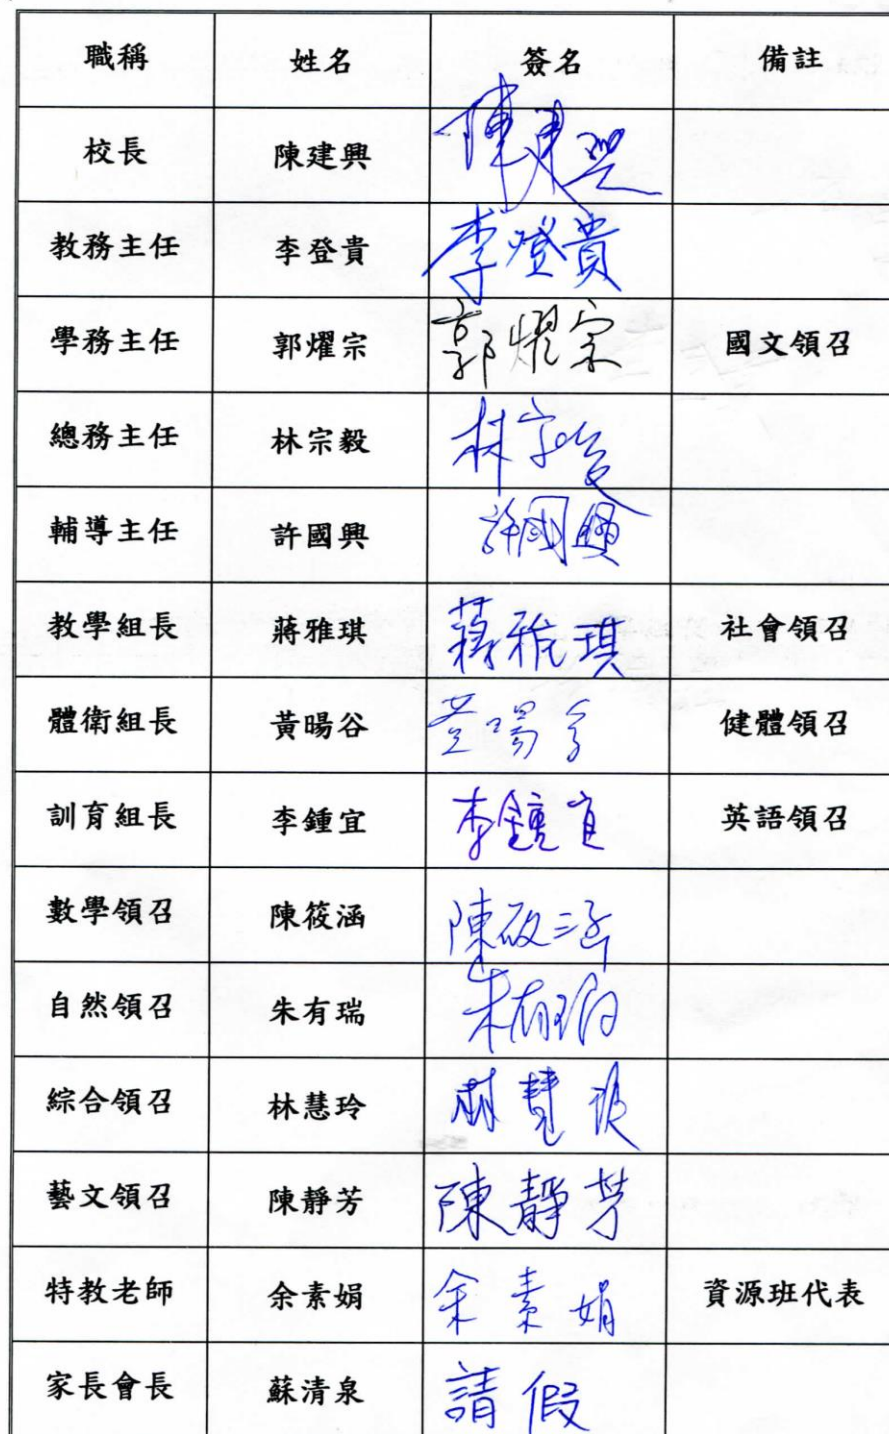 職稱 姓名 簽名 備註
校長 陳建興 陳建興
教務主任 李登貴 李登貴
學務主任 郭燿宗 郭燿宗 國文領召
總務主任 林宗毅 林宗毅
輔導主任 許國興 許國興
教學組長 蔣雅琪 蔣雅琪 社會領召
體衛組長 黃暘谷 黃暘谷 健體領召
訓育組長 李鍾宜 李鍾宜 英語領召
數學領召 陳筱涵 陳筱涵
自然領召 朱有瑞 朱有瑞
綜合領召 林慧玲 林慧玲
藝文領召 陳靜芳 陳靜芳
特教老師 余素娟 余素娟 資源班代表
家長會長 蘇清泉 請假